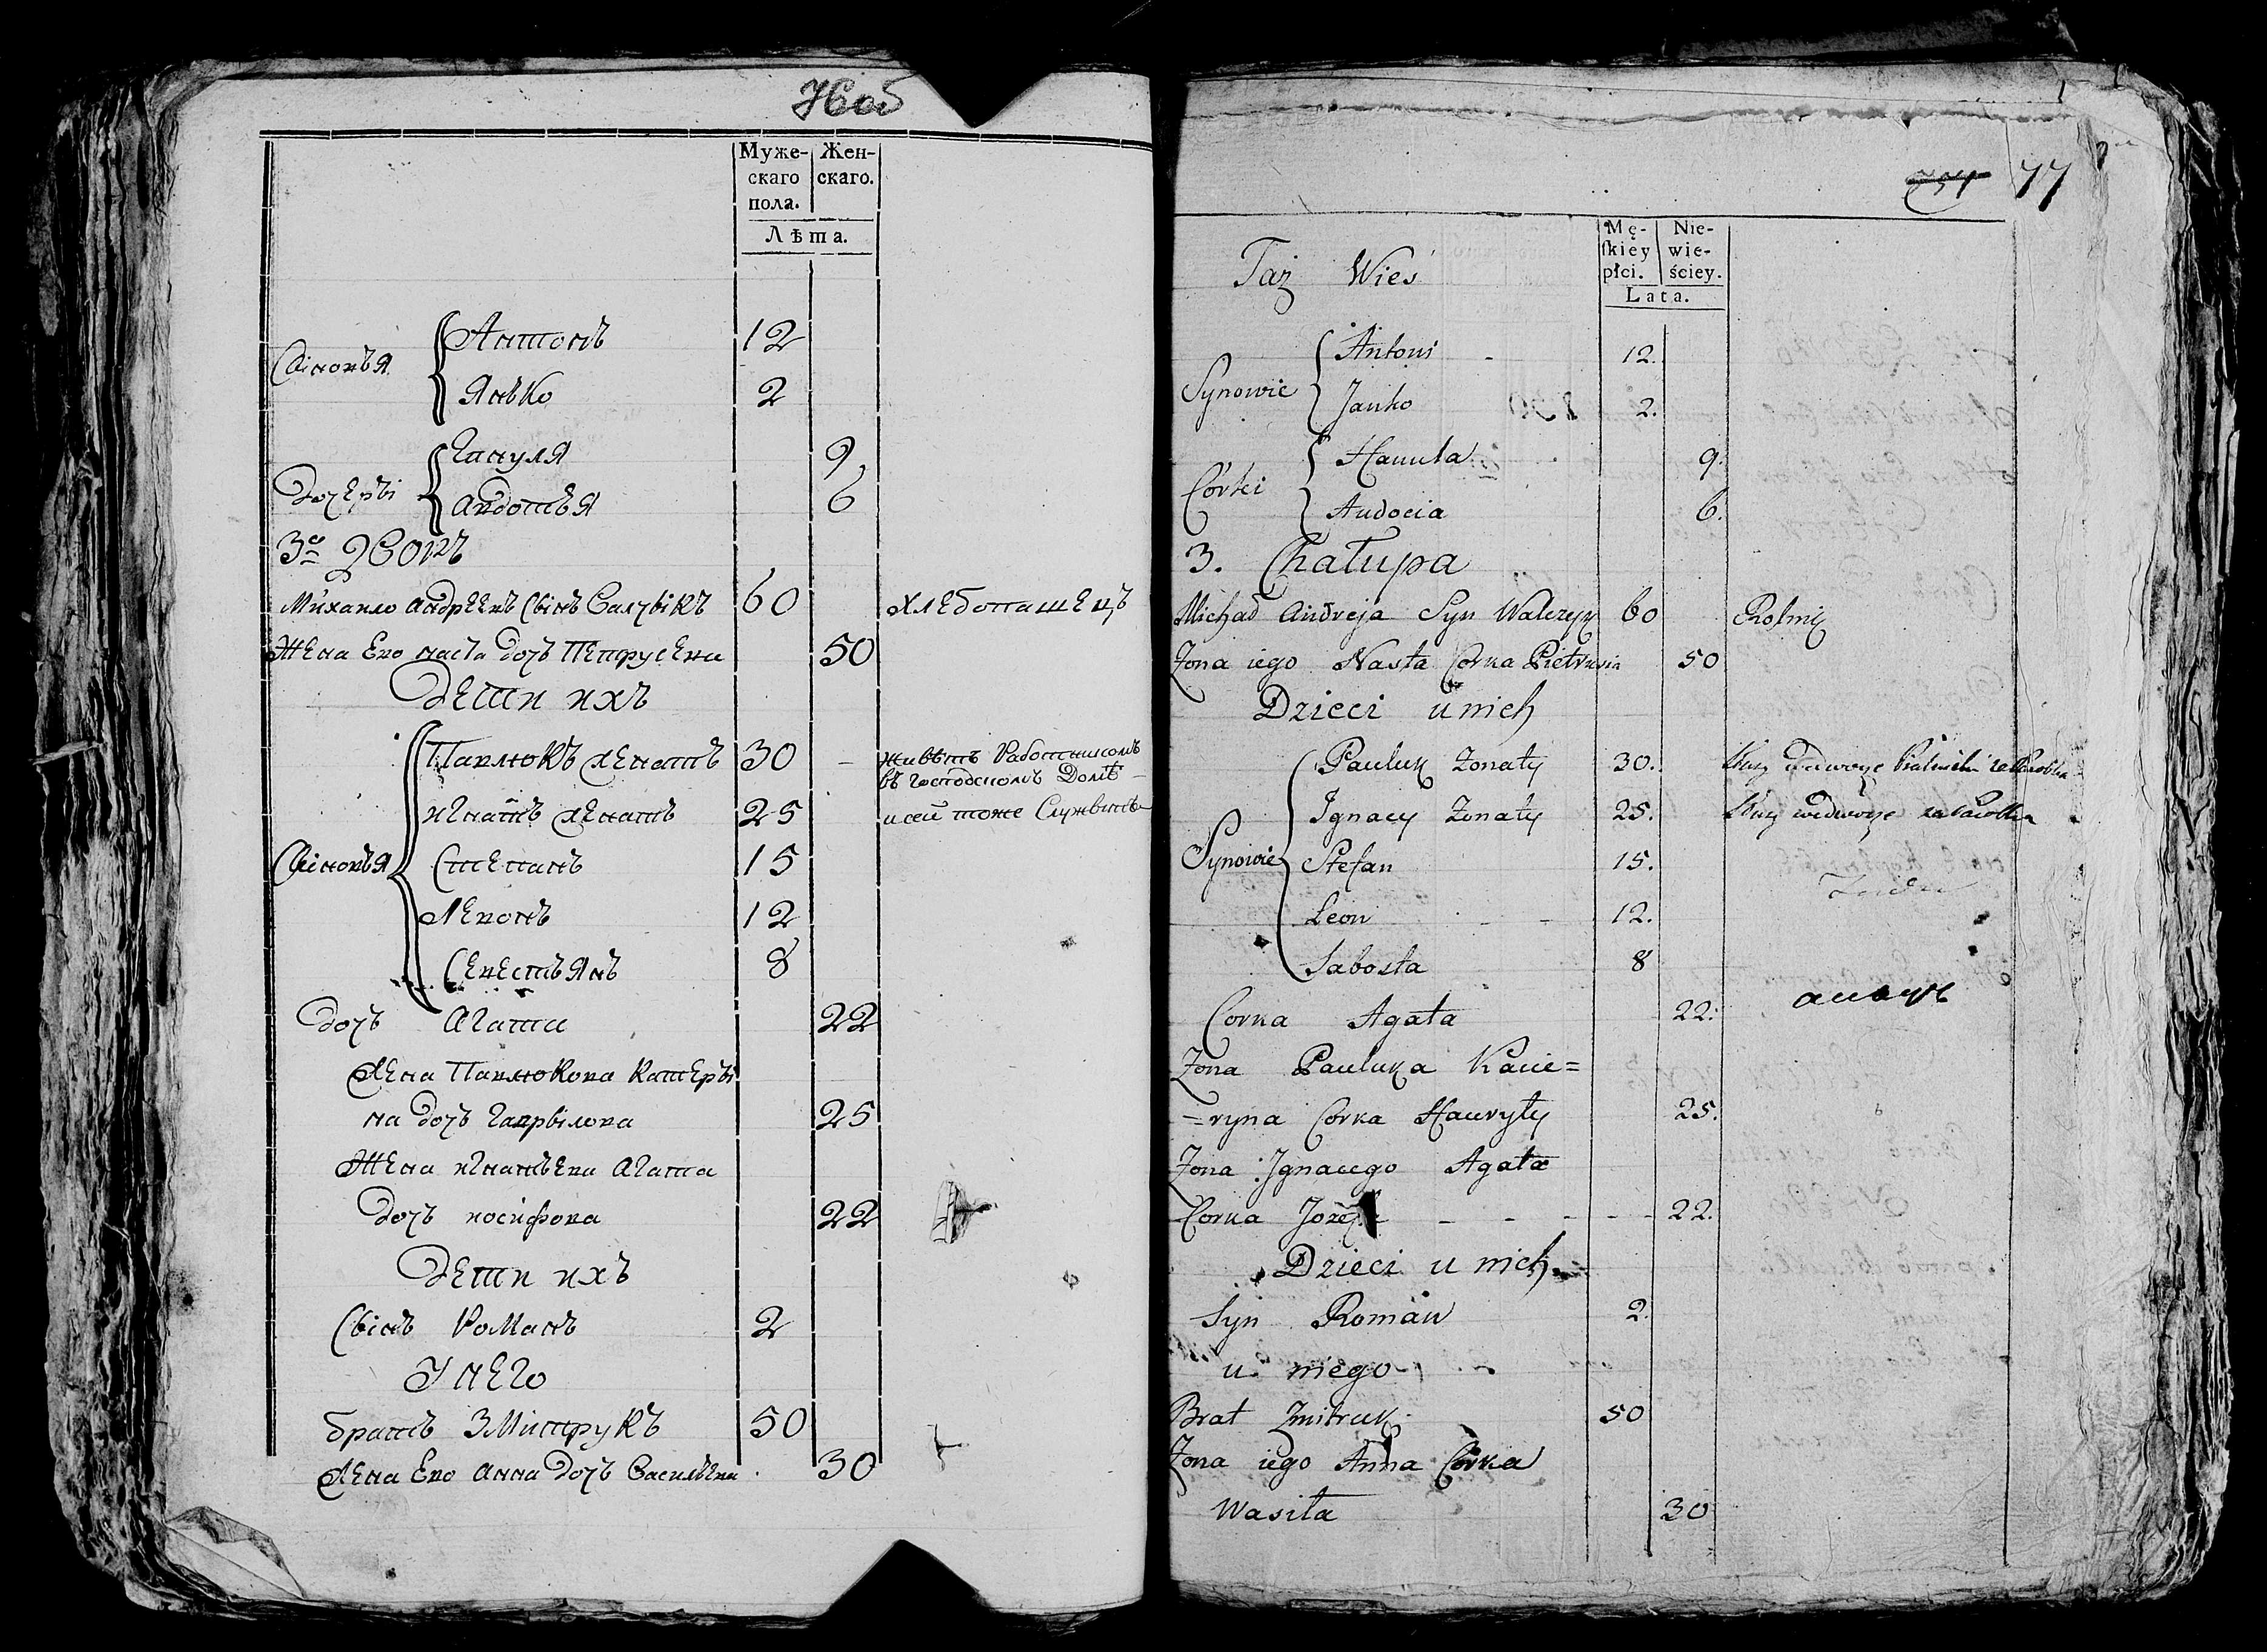 76об
Муже- Жен-
скаго скаго.
пола.
Лѣта.
Сыновья Антонъ 12
Янько 2
Дочеры Гануля 9
Авдотья 6
3й дворъ
Михайло Андреевъ Сынъ Валчыкъ 60 хлебопашецъ
Жена Его Наста дочь Петрусева 50
Дети ихъ
Сыновья Павлюкъ женатъ 30 живетъ Работникомъ
въ Господскомъ Доме
Игнатъ женатъ 25 и сей тоже Служить
Степанъ 15
Левонъ 12
Севестьянъ 8
дочь Агата 22
жена Павлюкова Катеры
на дочь Гаврылова 25
Жена Игнатьева Агата
дочь Иосифова 22
Дети ихъ
Сынъ Романъ 2
У него
братъ Змитрукъ 50
жена Ево Анна дочь Васильева 30
77
Taż Wieś
Mę- Nie-
ſkiey wie-
płci. ściey.
Lata.
Synowie Antoni 12.
Janko 2.
Corki Hanula 9.
Audocia 6.
3. Chałupa
Michał Andreja Syn Walczyk 60 Rolnik
Zona iego Nasta Corka Pietrusia 50
Dzieci u nich
Synowie Pauluk Zonaty 30.
Ignacy Zonaty 25.
Stefan 15.
Leon 12.
Sabosta 8
Corka Agata 22.
Zona Pauluka Kacie=
=ryna Corka Hauryły 25.
Zona Ignacego Agata
Corka Jozefa 22.
Dzieci u nich
Syn Roman 2.
u niego
Brat Zmitruk 50
Zona iego Anna Corka
Wasila 30